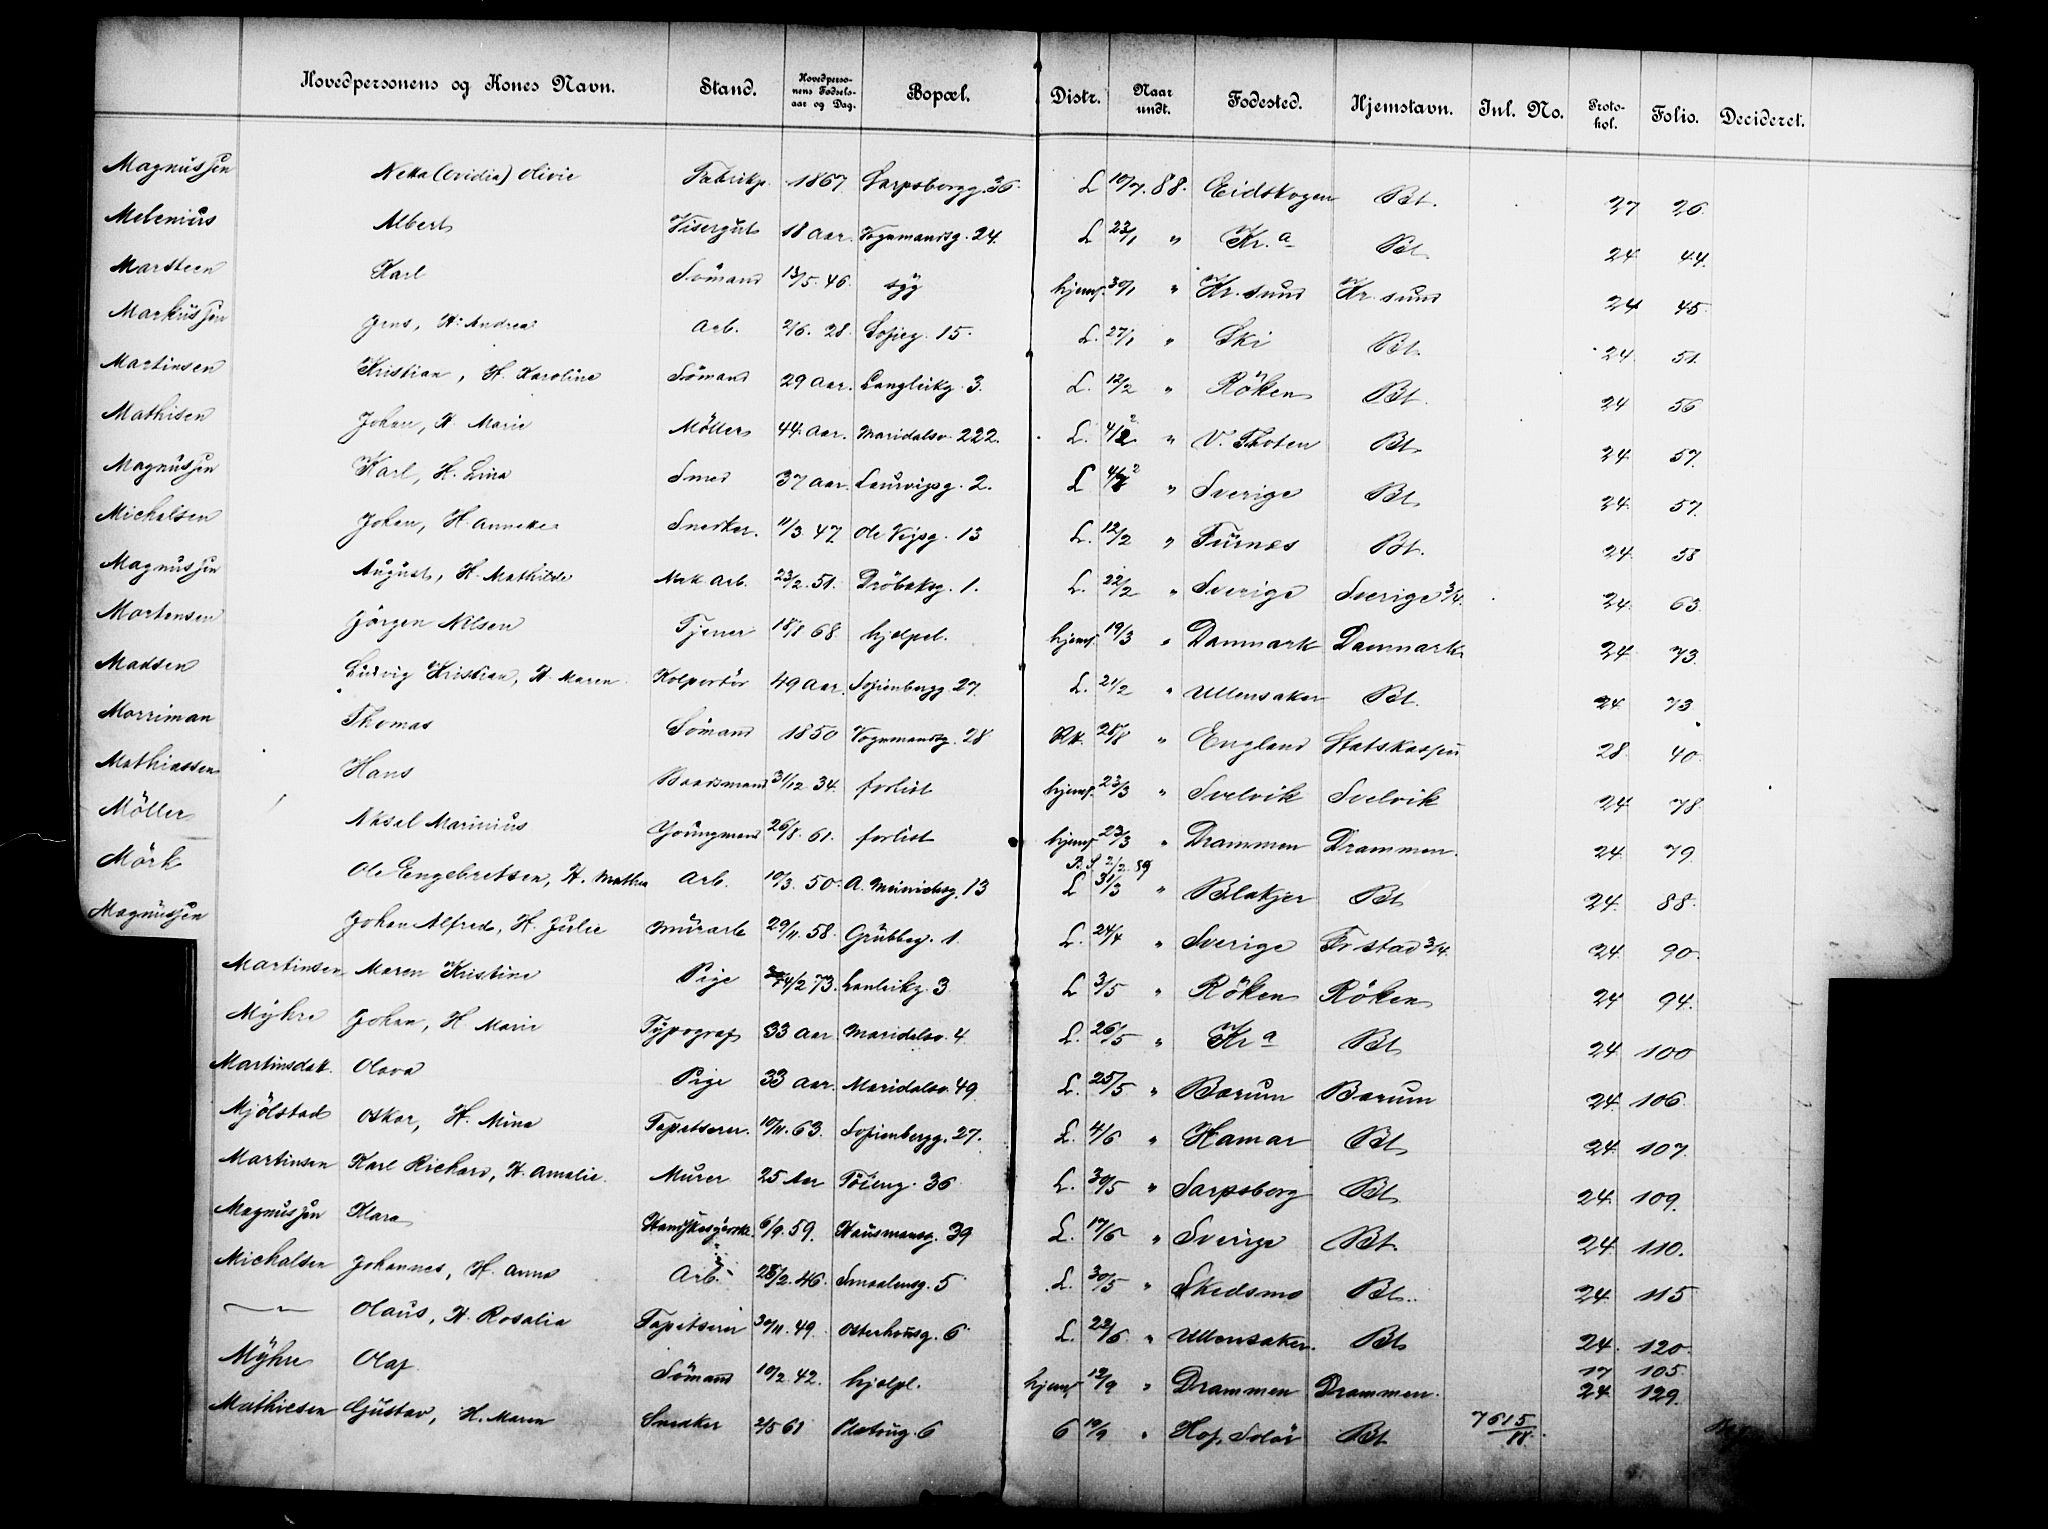 Hovedpersonens og Kones Navn. Stand. Hovedpersonens Fødselsaar og Dag. Bopæl. Distr. Naar undt. Fødested. Hjemstavn. Inl. No. Protokol. Folio. Decideret.
Magnussen Olivie Fabrikp. 1867. Sarpsborgg. 36 L 10/7. 88. Eidskogen Bt. 27 26
Melenius Albert Visergut 18 Aar. Vognmandsg. 24. L 23/1 " Kr.a Bt. 24 44.
Marsteen Karl Sömand 13/5. 46. syg hjemf. 30/1 " Kr. sund Kr. sund 24 45
Markussen Jens, H. Andrea Arb. 2/6. 28. Sofieg. 15. L. 27/1 " Ski Bt. 24 51.
Martinsen Kristian, H. Karoline Sömand 29 Aar. Langleikg. 3. L. 12/2 " Röken Bt. 24 56
Mathisen Johan, H. Marie Möller 44 Aar. Maridalsv. 222. L. 4/2 " V. Thoten Bt. 24 57.
Magnussen Karl, H. Lina Smed 37 Aar. Laurvigsg. 2. L 4/2 " Sverige Bt. 24 57.
Michalsen Johan, H. Anneke Snedker. 11/3 47. Ole Vigsg. 13 L. 12/2 " Furnes Bt. 24 58
Magnussen August, H. Mathilde Mek. Arb. 23/2. 51. Dröbaksg. 1. L. 22/2 " Sverige Sverige 3/4. 24 63.
Mortensen Jörgen Nilsen Tjener 18/8 68 hjelpel. hjemf. 19/3 " Danmark Danmark 24 73.
Madsen Ludvig Kristian, H. Maren Kolportör 49 Aar. Sofienbergg. 27. L. 21/2 " Ullensaker Bt. 24 73
Morriman Thomas Sömand 1850 Vognmandsg. 28 Rk. 28/8 " England Statskassen 28 40
Mathiassen Hans Baadsmand 31/12 34. forlist hjemf. 23/3 " Svelvik Svelvik 24 78.
Möller Aksel Marinius Youngmand 26/8. 61. forlist hjemf 23/3 " Drammen Drammen. 24 79
Mörk Ole Engebretsen, H. Mathea Arb. 10/3. 50. 13 L 31/3 " Blakjer Bt 24. 88.
Magnussen Johan Alfred, H. Julie Murarb 29/11. 58. Grubbeg. 1. L. 24/4 " Sverige Fr stad 3/4. 24 90.
Martinsen Maren Kristine Pige 4/2 73. 3 L 3/5 " Röken Röken 24 94.
Myhre Johan, H. Marie Typograf 33 Aar. Maridalsv. 4 L. 26/5 " Kr a Bt 24. 100
Martinsdat. Olava Pige 33 Aar. Maridalsv. 49 L. 25/5 " Bærum Bærum 24. 106.
Mjölstad Oskar, H. Mina Tapetserer. 10/11. 63. Sofienbergg. 27. L. 4/6 " Hamar Bt 24. 107.
Martinsen Karl Richard, H. Amalie. Murer 25 Aar Töieng. 36 L. 30/5 " Sarpsborg Bt 24. 109.
Magnussen Klara 6/9. 59. Hausmansg. 39 L. 17/6 " Sverige Bt. 24. 110.
Michalsen Johannes, H. Anna Arb. 28/2. 46. Smaalensg. 5 L. 30/5 " Skedsmo Bt. 24. 115
— " — Olaus, H. Rosalia Tapetserer 30/11. 49. Osterhausg. 6 L. 22/6 " Ullensaker. Bt 24. 120.
Myhre Olaf Sömand 10/2. 42. hjelpl. hjemf 12/9 " Drammen Drammen. 17 105. 24 129.
Mathiesen Gustav, H. Maren Snedker 2/5 61 6 6 19/9 " Hof, Solör Bt 7615/88.